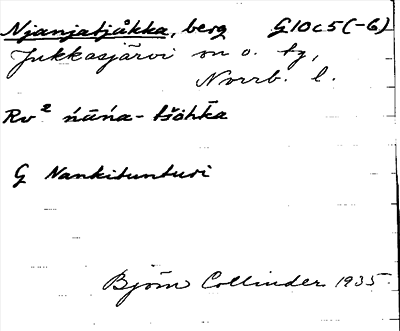 Njanjatjåkka, berg G10c5(-6)
Jukkasjärvi sn o. tg,
Norrb. l.
Rv² ńāńa-tšåhka
G Nankitunturi
Björn Collinder 1935.